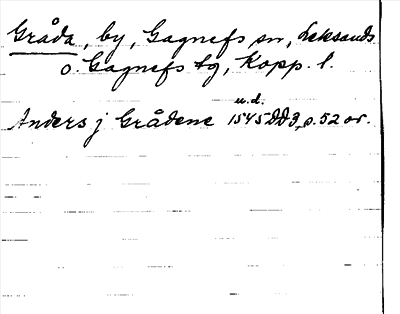 Gråda, by, Gagnefs sn, Leksands
o. Gagnefs tg, Kopp. l.
u.d.
Anders j Grådene 1545 DD 3, s. 52 or.